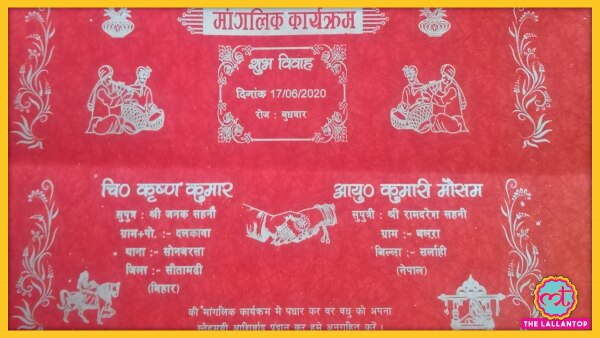 मांगलिक कार्यक्रम
शुभ विवाह
दिनांक 17/06/2020
रोज : बुधवार
चि० कृष्ण कुमार
सुपुत्र : श्री जनक सहनी
ग्राम+पो. :- दलकावा
थाना :- सोनबरसा
जिला :- सीतामढी
(बिहार)
आयु० कुमारी मौसम
सुपुत्री : श्री रामदरेश सहनी
ग्राम :- बलरा
जिल्ला :- सर्लाही
(नेपाल)
की मांगलिक कार्यक्रम में पधार कर वर वधु को अपना
स्नेहमयी आशिर्वाद प्रदान कर हमे अनुगहित करें ।
THE LALLANTOP